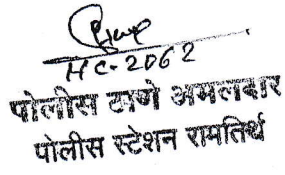 HC-2062
पोलीस ठाणे अमलदार
पोलीस स्टेशन रामतिर्थ